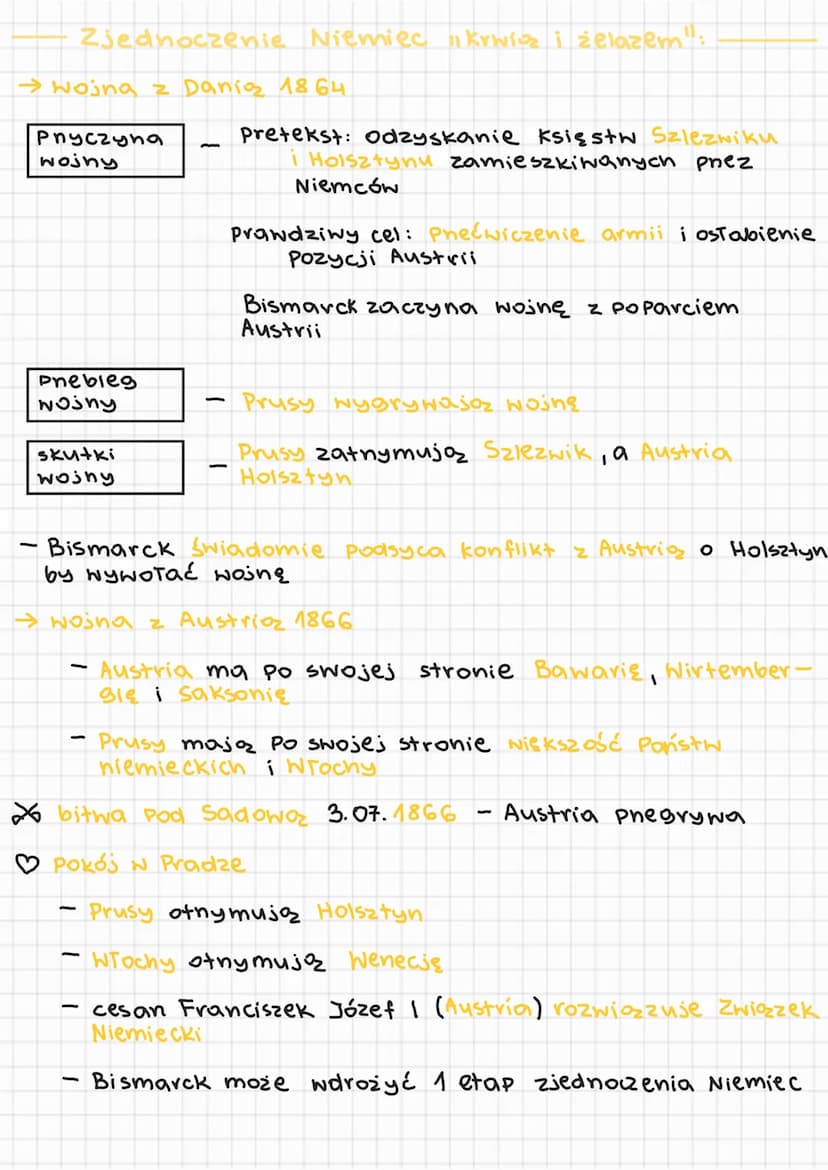 Zjednoczenie Niemiec "krwią i żelazem":
→ wojna z Danią 1864
przyczyna
wojny
- pretekst: odzyskanie księstw Szlezwiku
i Holsztynu zamieszkiwanych przez
Niemców
prawdziwy cel: przećwiczenie armii i osłabienie
pozycji Austrii
Bismarck zaczyna wojnę z poparciem
Austrii
przebieg
wojny
- Prusy wygrywają wojnę
skutki
wojny
- Prusy zatrzymują Szlezwik, a Austria
Holsztyn
- Bismarck świadomie podsyca konflikt z Austrią o Holsztyn
by wywołać wojnę
→ wojna z Austrią 1866
- Austria ma po swojej stronie Bawarię, Wirtember-
gię i Saksonię
- Prusy mają po swojej stronie większość państw
niemieckich i Włochy
bitwa pod Sadową 3.07.1866 - Austria przegrywa
♡ pokój w Pradze
- Prusy otrzymują Holsztyn
- Włochy otrzymują Wenecję
- cesarz Franciszek Józef I (Austria) rozwiązuje Związek
Niemiecki
- Bismarck może wdrożyć 1 etap zjednoczenia Niemiec